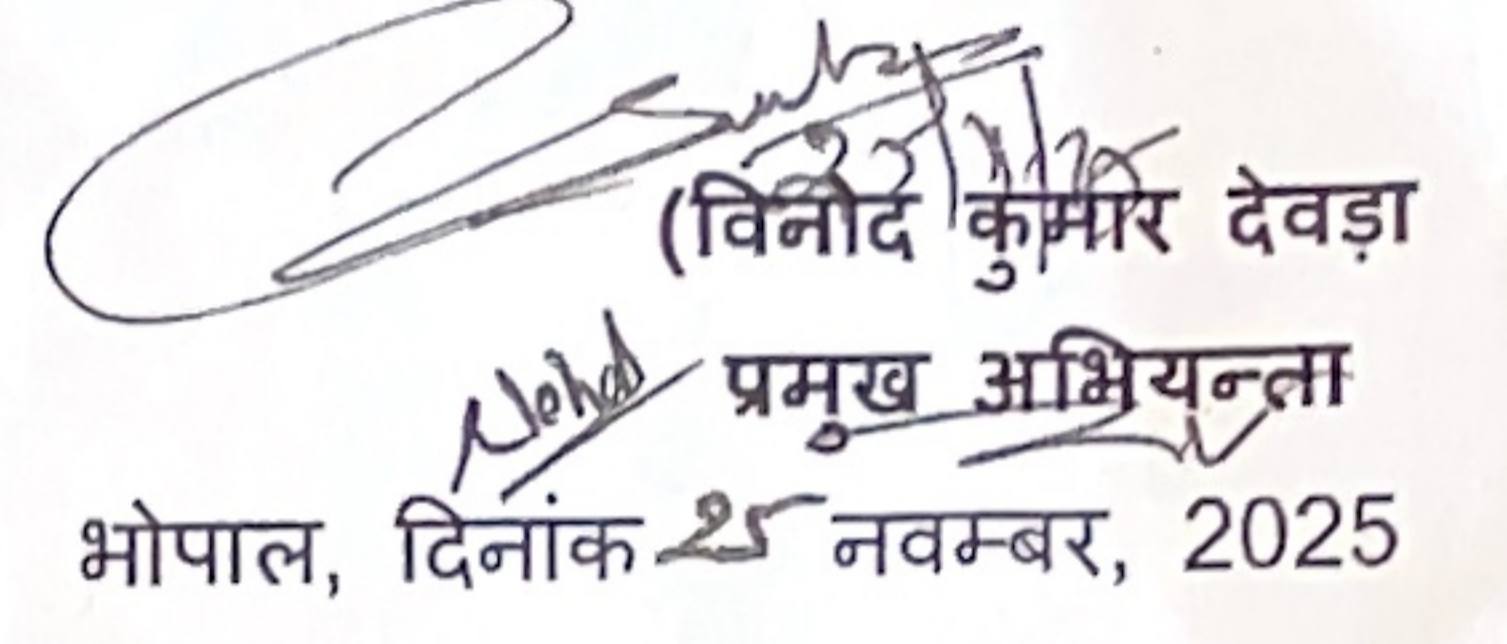 25/11/25
(विनोद कुमार देवड़ा
प्रमुख अभियन्ता
भोपाल, दिनांक 25 नवम्बर, 2025